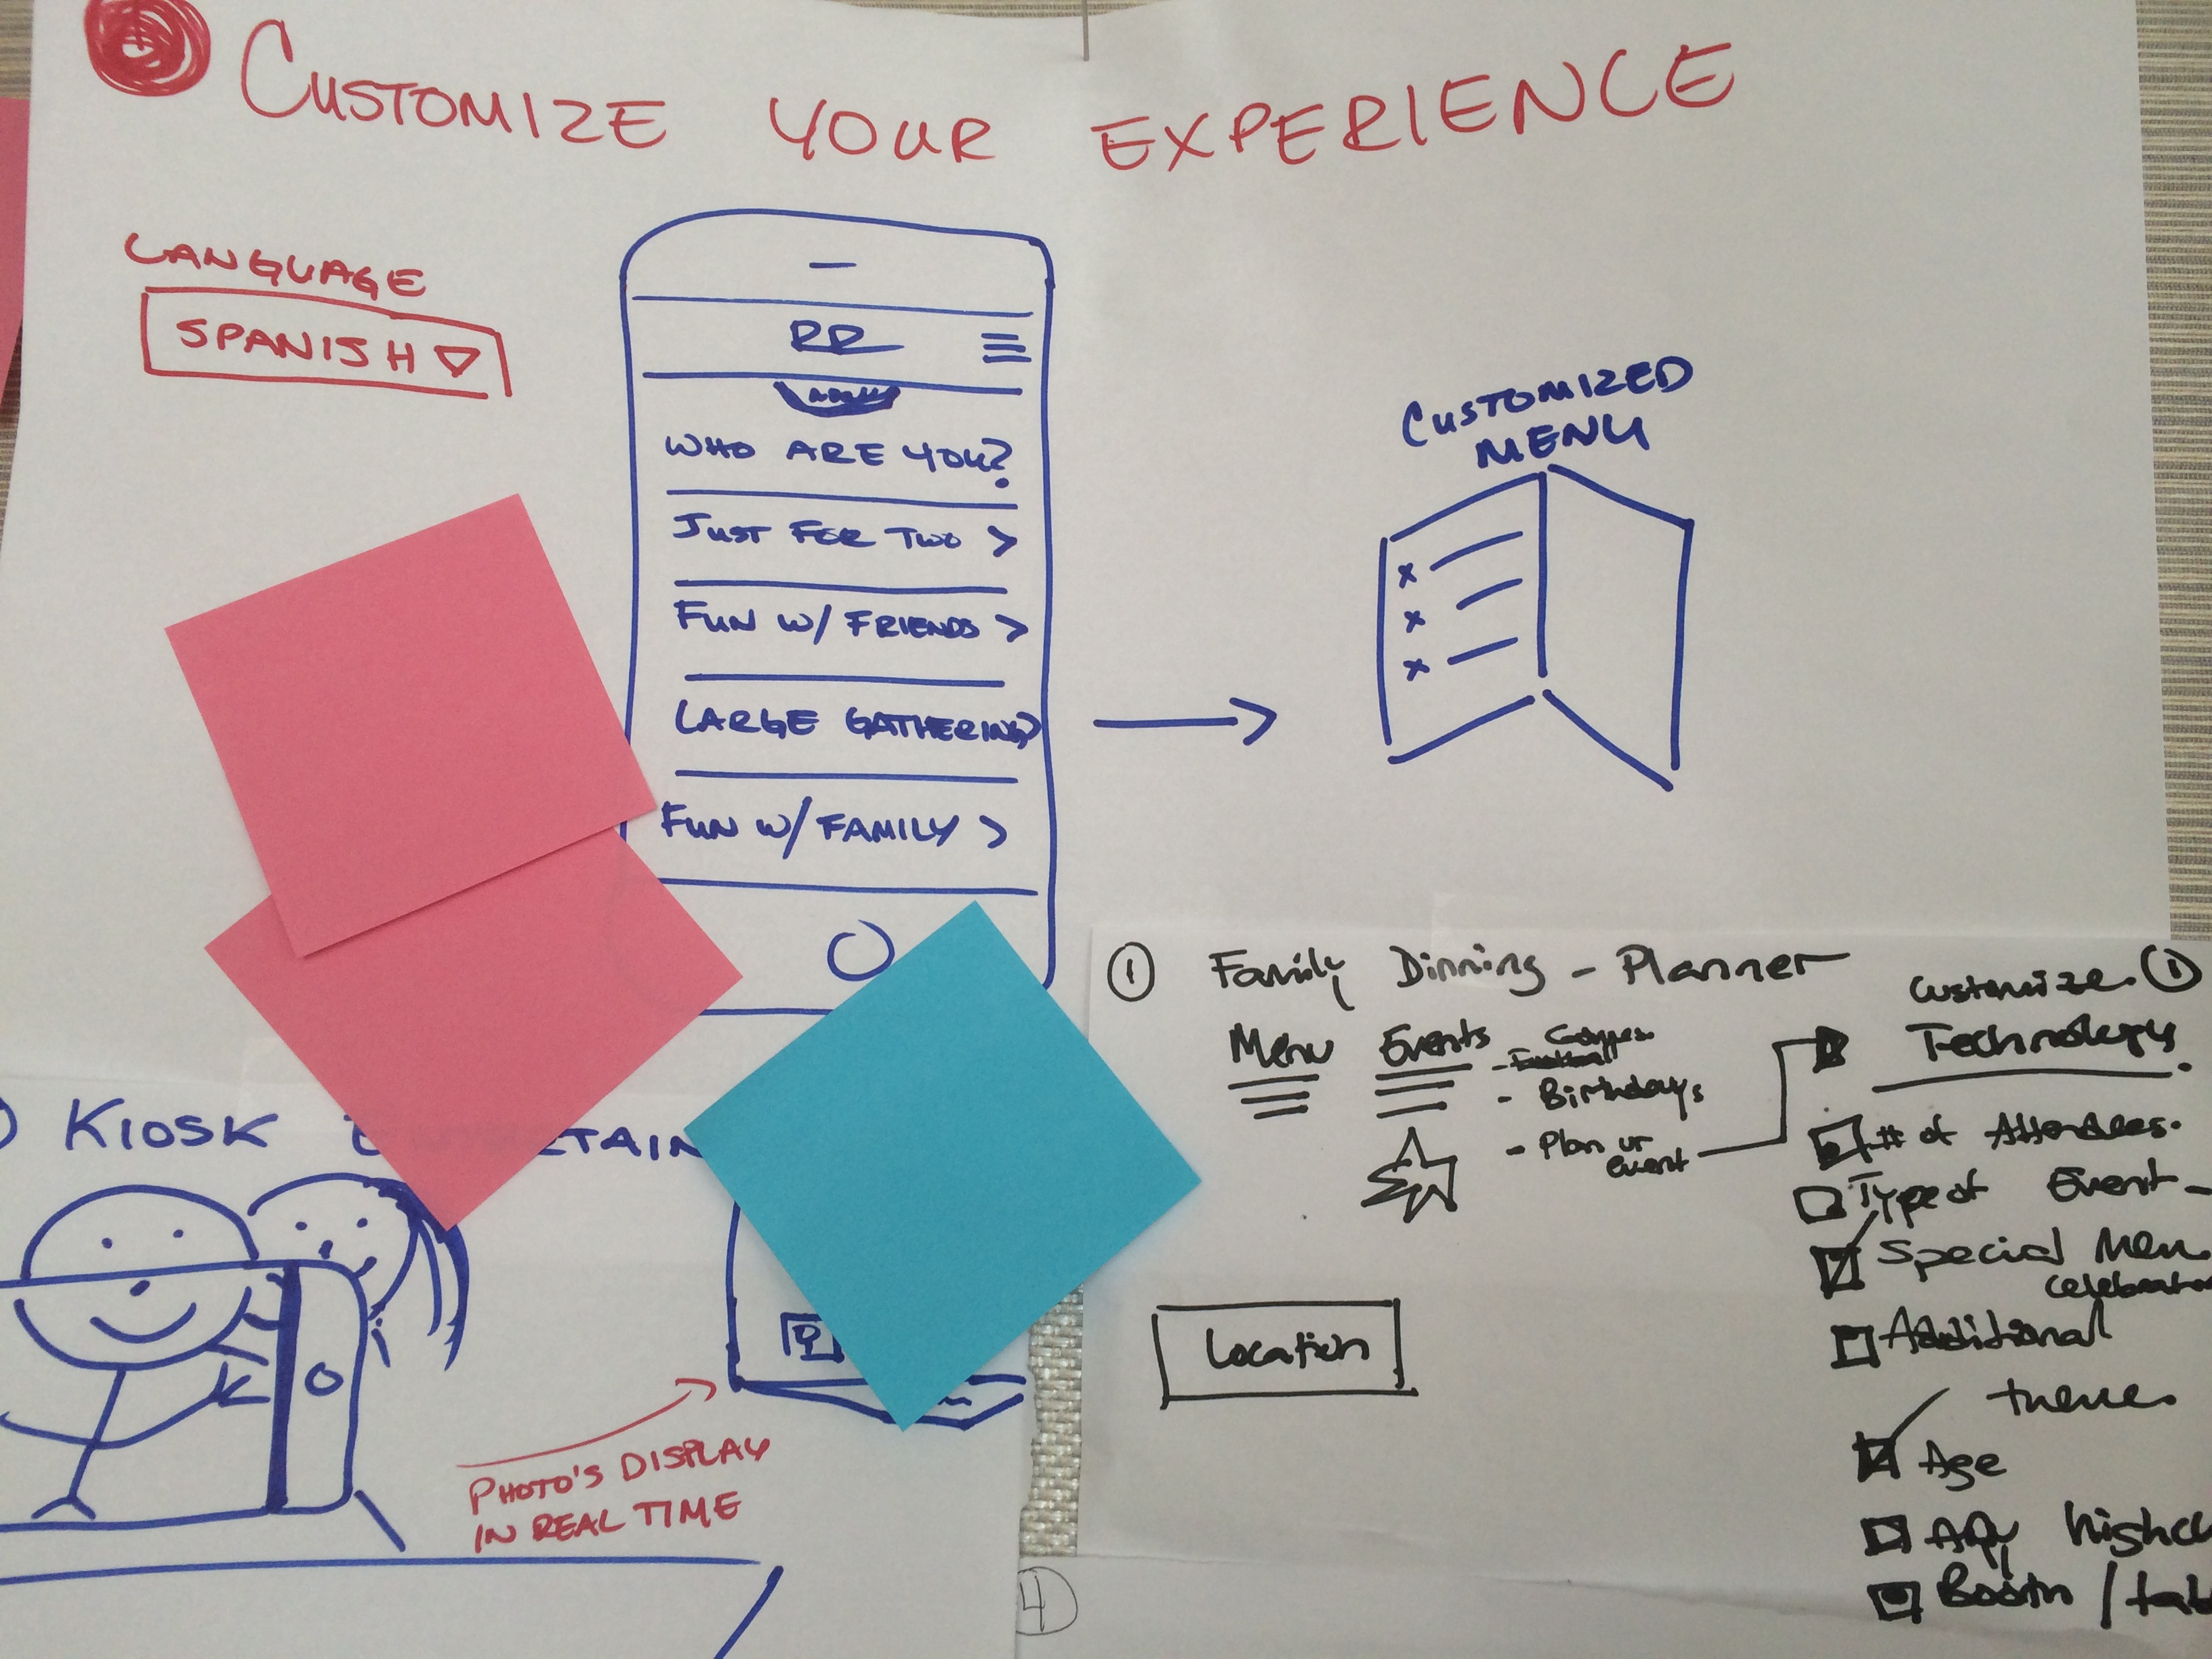 CUSTOMIZE YOUR EXPERIENCE
LANGUAGE
SPANISH
RR
WHO ARE YOU?
JUST FOR TWO >
FUN W/ FRIENDS >
LARGE GATHERING >
FUN W/ FAMILY >
CUSTOMIZED
MENU
x
x
x
KIOSK
TAIN
PHOTO'S DISPLAY
IN REAL TIME
1 Family Dinning - Planner
Menu
Events
- Birthdays
- Plan ur
event
Location
Customize. 1
Technology
# of Attendees.
Type of Event -
Special Men
celebrat
Additional
theme.
Age
Any highch
Booth / tab
4